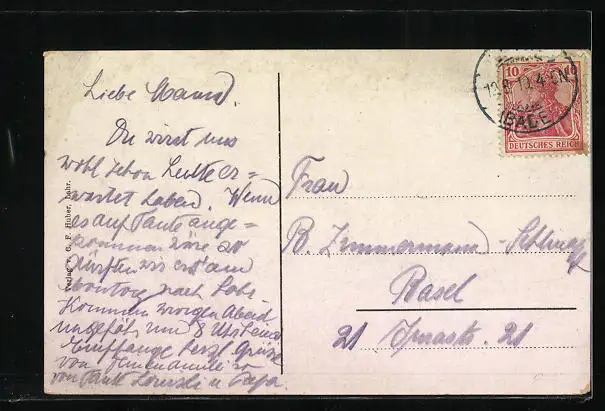 Liebe Mama,
Du wirst uns
wohl schon heute er=
wartet haben. Wenn
es auf Tante ange=
kommen wäre so
dürften wir erst am
Montag nach
Kommen morgen Abend
ungefähr um 8 Uhr
Empfange herzl. Grüsse
von
von Tante u Papa.
Verlag v. G. F. Huber, Lahr.
10 10
DEUTSCHES REICH
(BADE
Frau
B. Zimmermann-
Basel
21 21